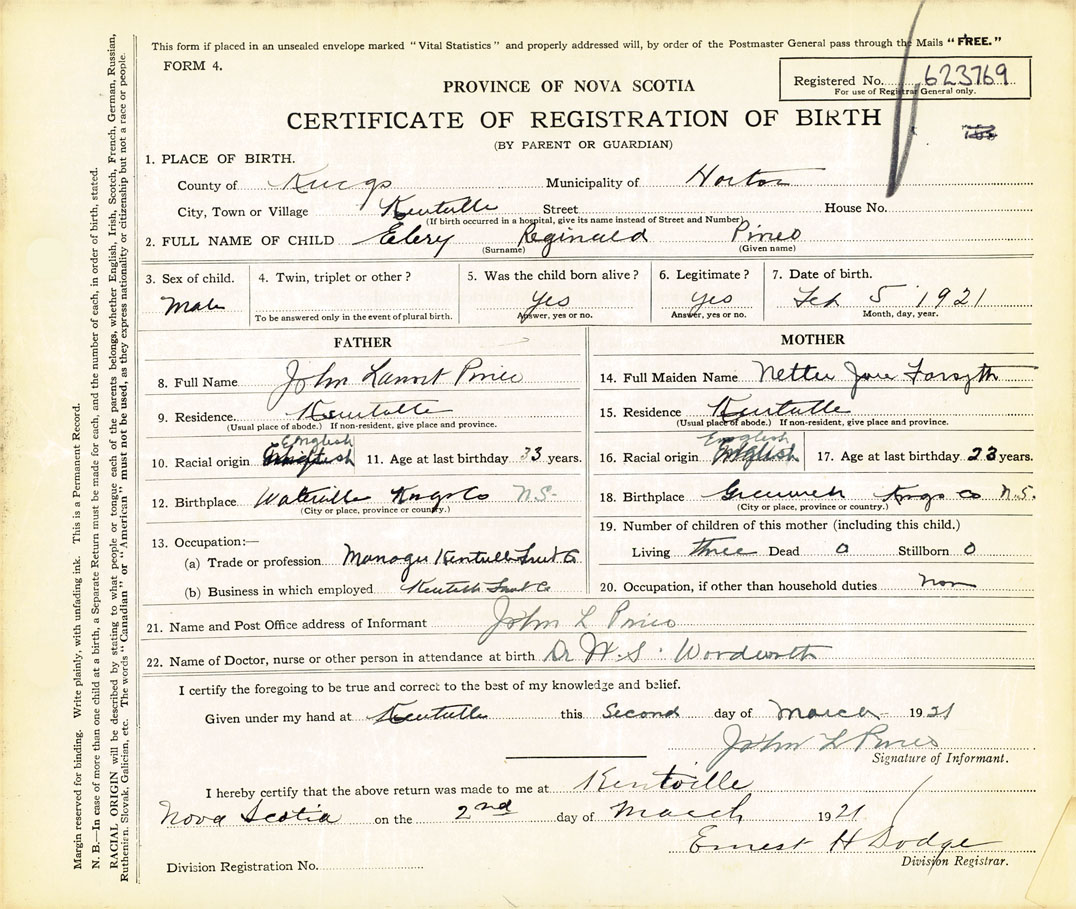 This form if placed in an unsealed envelope marked "Vital Statistics" and properly addressed will, by order of the Postmaster General pass through the Mails "FREE."
FORM 4.
Registered No. 623769
For use of Registrar General only.
PROVINCE OF NOVA SCOTIA
CERTIFICATE OF REGISTRATION OF BIRTH
(BY PARENT OR GUARDIAN)
1. PLACE OF BIRTH.
County of Kings Municipality of Horton
City, Town or Village Kentville Street House No.
(If birth occurred in a hospital, give its name instead of Street and Number)
2. FULL NAME OF CHILD Elery Reginald Pineo
(Surname) (Given name)
3. Sex of child. 4. Twin, triplet or other? 5. Was the child born alive? 6. Legitimate? 7. Date of birth.
Male Yes Yes Feb 5 1921
To be answered only in the event of plural birth. Answer, yes or no. Answer, yes or no. Month, day, year.
FATHER
8. Full Name John Pineo
9. Residence. Kentville
(Usual place of abode.) If non-resident, give place and province.
10. Racial origin English 11. Age at last birthday 33 years.
12. Birthplace Waterville Kings Co N.S.
(City or place, province or country.)
13. Occupation:—
(a) Trade or profession Manager Kentville Fruit Co
(b) Business in which employed Kentville Fruit Co
MOTHER
14. Full Maiden Name Nettie Jane Forsyth
15. Residence Kentville
(Usual place of abode.) If non-resident, give place and province.
16. Racial origin English 17. Age at last birthday 23 years.
18. Birthplace Greenwich Kings Co N.S.
(City or place, province or country.)
19. Number of children of this mother (including this child.)
Living three Dead 0 Stillborn 0
20. Occupation, if other than household duties non
21. Name and Post Office address of Informant John L Pineo
22. Name of Doctor, nurse or other person in attendance at birth Dr W.S. Woodworth
I certify the foregoing to be true and correct to the best of my knowledge and belief.
Given under my hand at Kentville this Second day of March 1921
John L Pineo
Signature of Informant.
I hereby certify that the above return was made to me at Kentville
Nova Scotia on the 2nd day of March 1921
Ernest H Dodge
Division Registrar.
Division Registration No.
Margin reserved for binding. Write plainly, with unfading ink. This is a Permanent Record.
N. B.—In case of more than one child at a birth, a Separate Return must be made for each, and the number of each, in order of birth, stated.
RACIAL ORIGIN will be described by stating to what people or tongue each of the parents belongs, whether English, Irish, Scotch, French, German, Russian,
Ruthenien, Slovak, Galician, etc. The words "Canadian" or "American" must not be used, as they express nationality or citizenship but not a race or people.